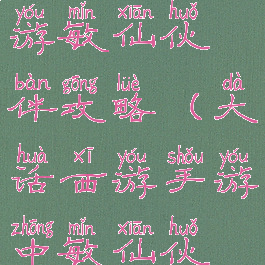 yóu mǐn xiān huǒ
游敏仙伙
bàn gōng lüè dà
伴攻略（大
huà xī yóu shǒu yóu
话西游手游
zhōng mǐn xiān huǒ
中敏仙伙